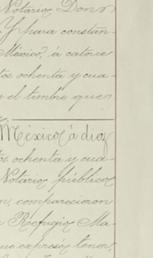 Notario Don
Y para constan-
México, á catorce
tos ochenta y cua-
el timbre que
México, á diez
tos ochenta y cua-
Notario público
comparecieron
Refugio Ma-
que expresó tener